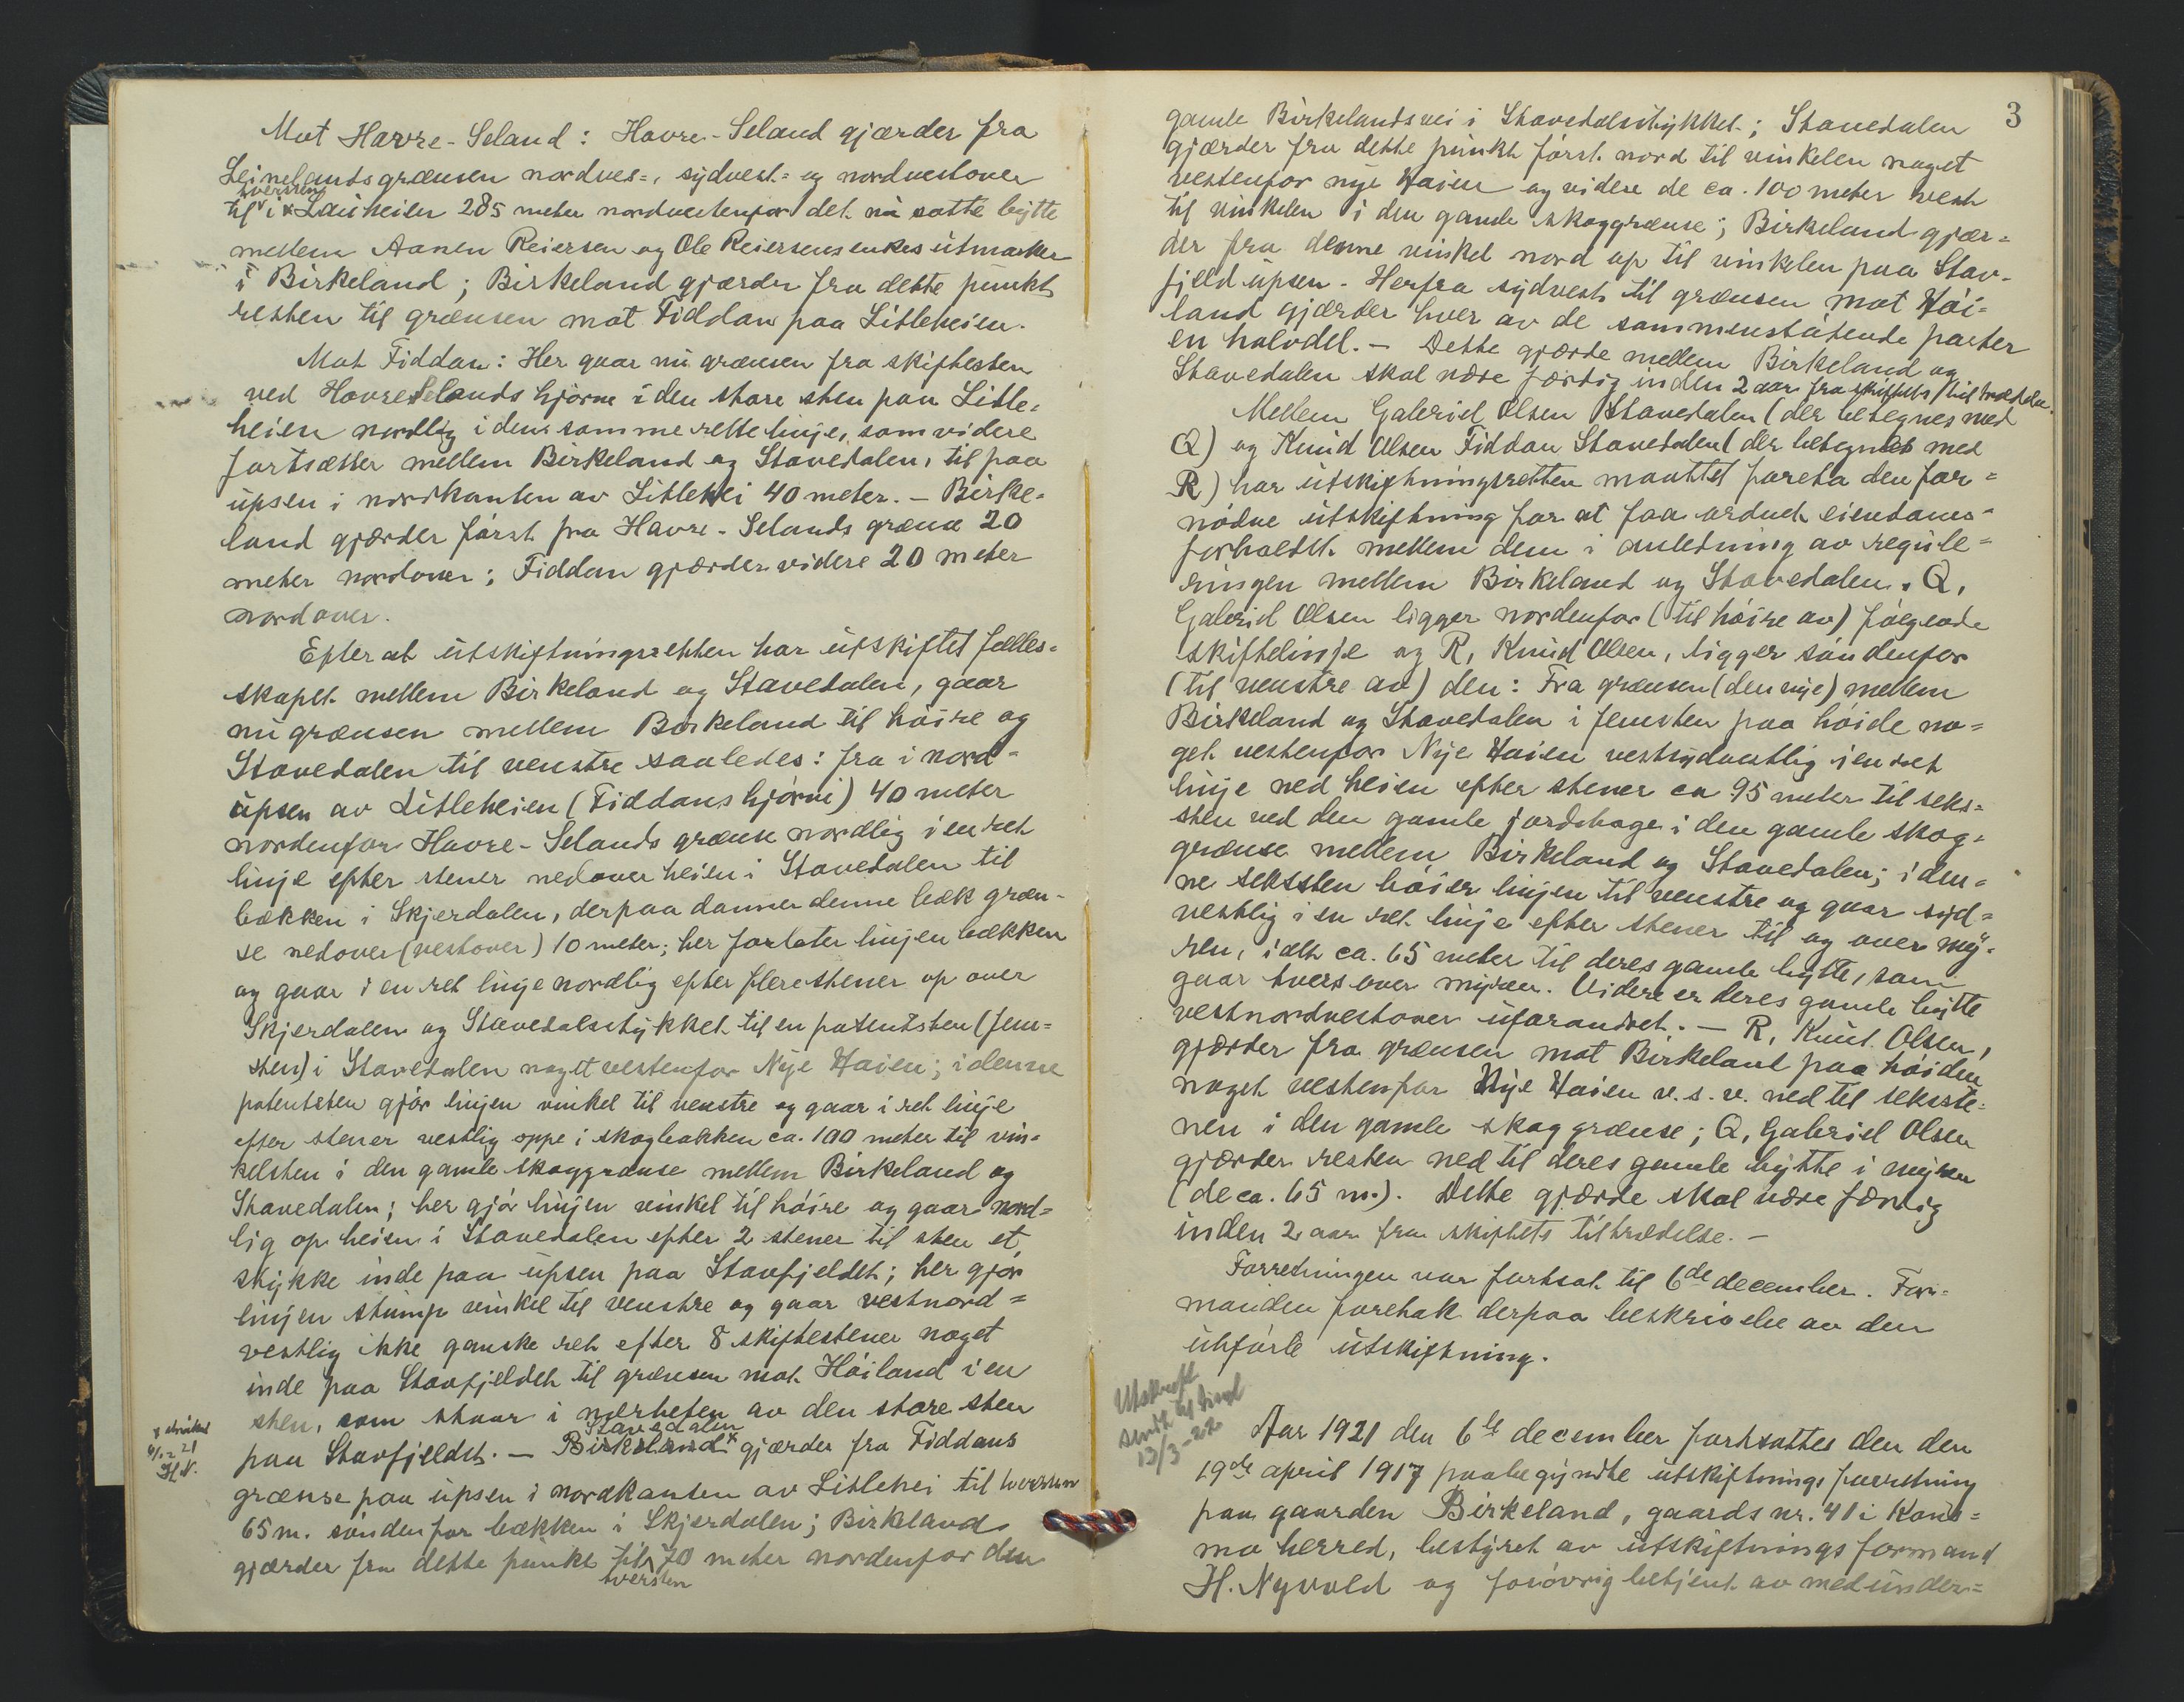 Mot Havre-Seland: Havre-Seland gjærder fra
Leinelandsgrænsen nordves=, sydvest= og nordvestover
tversten
til i Lauheien 285 meter nordvestenfor det nu satte bytte
mellem Aanen Reiersen og Ole Reiersens enkes utmarker
i Birkeland; Birkeland gjærder fra dette punkt
resten til grænsen mot Fiddan paa Litleheien.
Mot Fiddan: Her gaar nu grænsen fra skiftesten
ved Havreselands hjørne i den store sten paa Litle=
heien nordlig i den samme rette linje, som videre
fortsætter mellem Birkeland og Stavedalen, til paa
upsen i nordkanten av Litlehei 40 meter. – Birke=
land gjærder først fra Havre-Selands grænse 20
meter nordover; Fiddan gjærder videre 20 meter
nordover.
Efter at utskiftningsretten har utskiftet felles=
skapet mellem Birkeland og Stavedalen, gaar
nu grænsen mellem Birkeland til høire og
Stavedalen til venstre saaledes: fra i nord=
upsen av Litleheien (Fiddans hjørne) 40 meter
nordenfor Havre-Selands grænse nordlig i en ret
linje efter stener nedover heien i Stavedalen til
bækken i Skjerdalen, derpaa danner denne bæk græn-
se nedover (vestover) 10 meter; her forlater linjen bækken
og gaar i en ret linje nordlig efter flere stener op over
Skjerdalen og Stavedalstykket til en patentsten (fem=
sten) i Stavedalen noget vestenfor Nye Haien; i denne
patentsten gjør linjen vinkel til venstre og gaar i ret linje
efter stener vestlig oppe i skogbakken ca. 100 meter til vin=
kelsten i den gamle skoggrænse mellem Birkeland og
Stavedalen; her gjør linjen vinkel til høire og gaar nord=
lig op heien i Stavedalen efter 2 stener til sten et
stykke inde paa upsen paa Stavfjeldet; her gjør
linjen stump vinkel til venstre og gaar vestnord=
vestlig ikke ganske ret efter 8 skiftestener noget
inde paa Stavfjeldet til grænsen mot Høiland i en
sten, som staar i nærheten av den store sten
Stavedalen
x
6/12 21
H.N.
paa Stavfjeldet. – Birkeland x gjærder fra Fiddans
grænse paa upsen i nordkanten av Litlehei til tversten
65 m. søndenfor bækken i Skjerdalen; Birkeland
gjærder fra dette punkt til 70 meter nordenfor den
tversten
3
gamle Birkelandsvei i Stavedalstykket; Stavedalen
gjærder fra dette punkt først nord til vinkelen noget
vestenfor nye Haien og videre de ca. 100 meter vest
til vinkelen i den gamle skoggrænse; Birkeland gjær=
der fra denne vinkel nord op til vinkelen paa Stav-
fjeldupsen. Herfra sydvest til grænsen mot Høi=
land gjærder hver av de sammenstøtende parter
en halvdel. – Dette gjærde mellem Birkeland og
Stavedalen skal være færdig inden 2 aar fra skiftets tiltrædelse.
Mellem Gabriel Olsen Stavedalen (der betegnes med
Q) og Knud Olsen Fiddan Stavedalen (der betegnes med
R) har utskiftningsretten maattet foreta den for=
nødne utskiftning for at faa ordnet eiendoms=
forholdet mellem dem i anledning av regule=
ringen mellem Birkeland og Stavedalen. Q,
Gabriel Olsen ligger nordenfor (til høire av) følgende
skiftelinje og R, Knud Olsen, ligger søndenfor
(til venstre av) den: Fra grænsen (den nye) mellem
Birkeland og Stavedalen i femsten paa høide no=
get vestenfor Nye Haien vestsydvestlig i en ret
linje ned heien efter stener ca 95 meter til seks=
sten ved den gamle jordehage i den gamle skog=
grænse mellem Birkeland og Stavedalen; i den=
ne seksten høier linjen til venstre og gaar syd=
vestlig i en ret linje efter stener til og over my=
ren, i alt ca. 65 meter til deres gamle bytte, som
gaar tvers over myren. Videre er deres gamle bytte
vestnordvestover uforandret. – R, Knut Olsen,
gjærder fra grænsen mot Birkeland paa høiden
noget vestenfor Nye Haien v.s.v. ned til seksste=
nen i den gamle skoggrænse; Q, Gabriel Olsen
gjærder resten ned til deres gamle bytte i myren
(de ca. 65 m.). Dette gjærde skal være færdig
inden 2 aar fra skiftets tiltrædelse. –
Forretningen var fortsat til 6de december. For=
manden foretok derpaa beskrivelse av den
utførte utskiftning.
Utskrift
sendt til
13/3-22
Aar 1921 den 6te december fortsattes den den
19de april 1917 paabegyndte utskiftningsforretning
paa gaarden Birkeland, gaards nr. 41 i Kvins=
mo herred, bestyret av utskiftningsformand
H. Nyvold og forøvrig betjent av medunder=